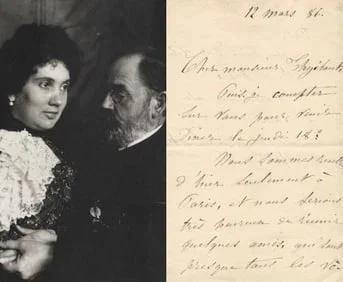 12 mars 86.
Cher monsieur
Puis-je compter
sur vous pour venir
dîner le jeudi 18?
Nous sommes
d'hier seulement à
Paris, et nous serions
très heureux de réunir
quelques amis, qui sont
presque tous les vô-